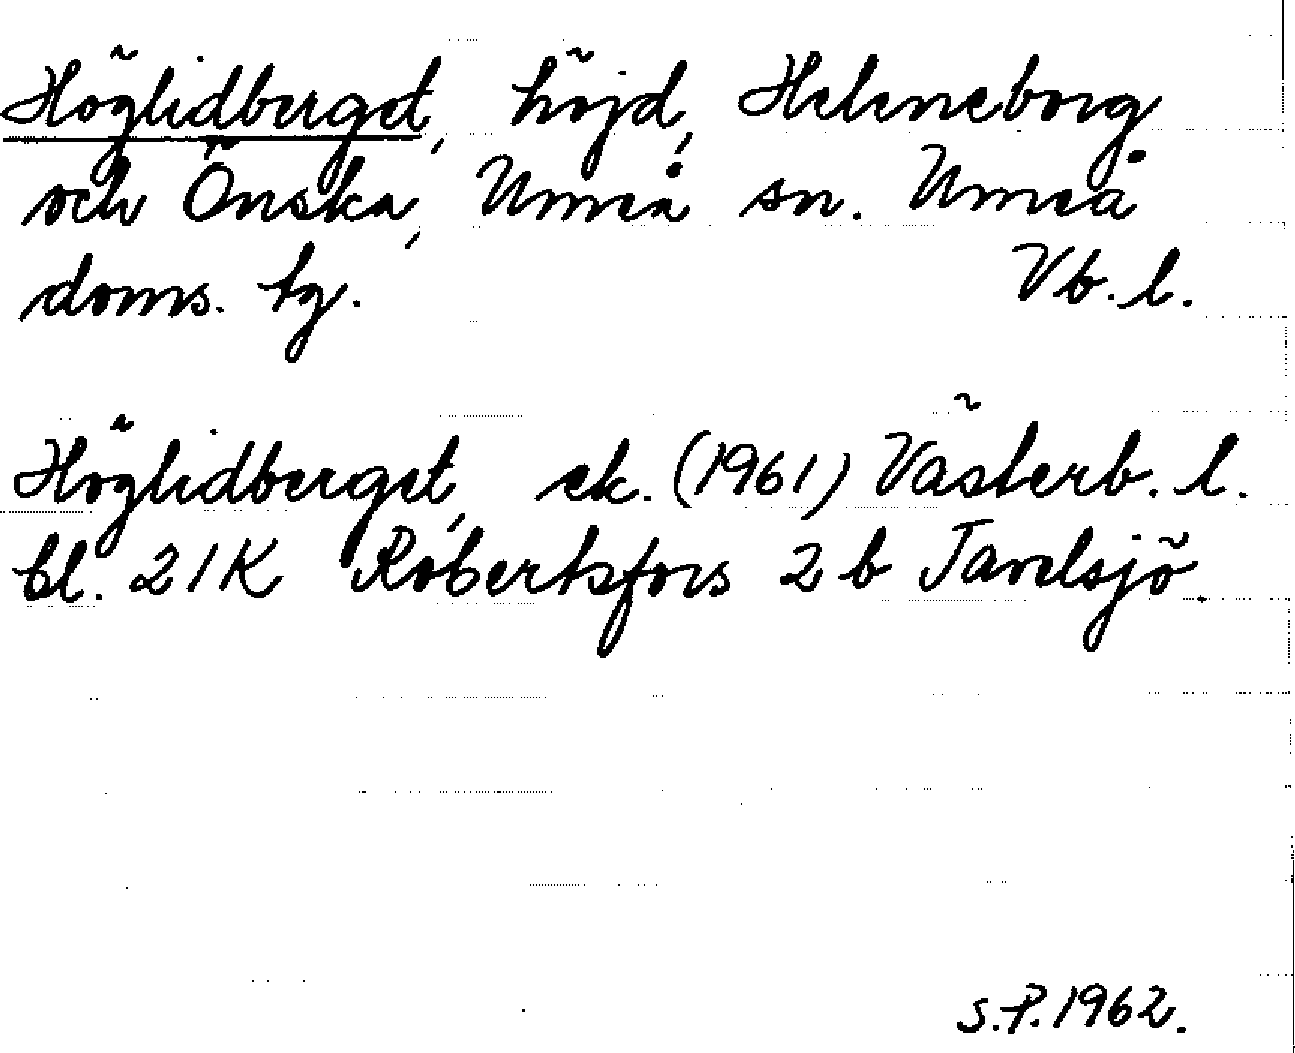 Höglidberget, höjd, Heleneborg
och Önska, Umeå sn. Umeå
doms. tg. Vb. l.
Höglidberget, ek. (1961) Västerb. l.
bl. 21K Robertsfors 2 b Tavelsjö.
S.P. 1962.